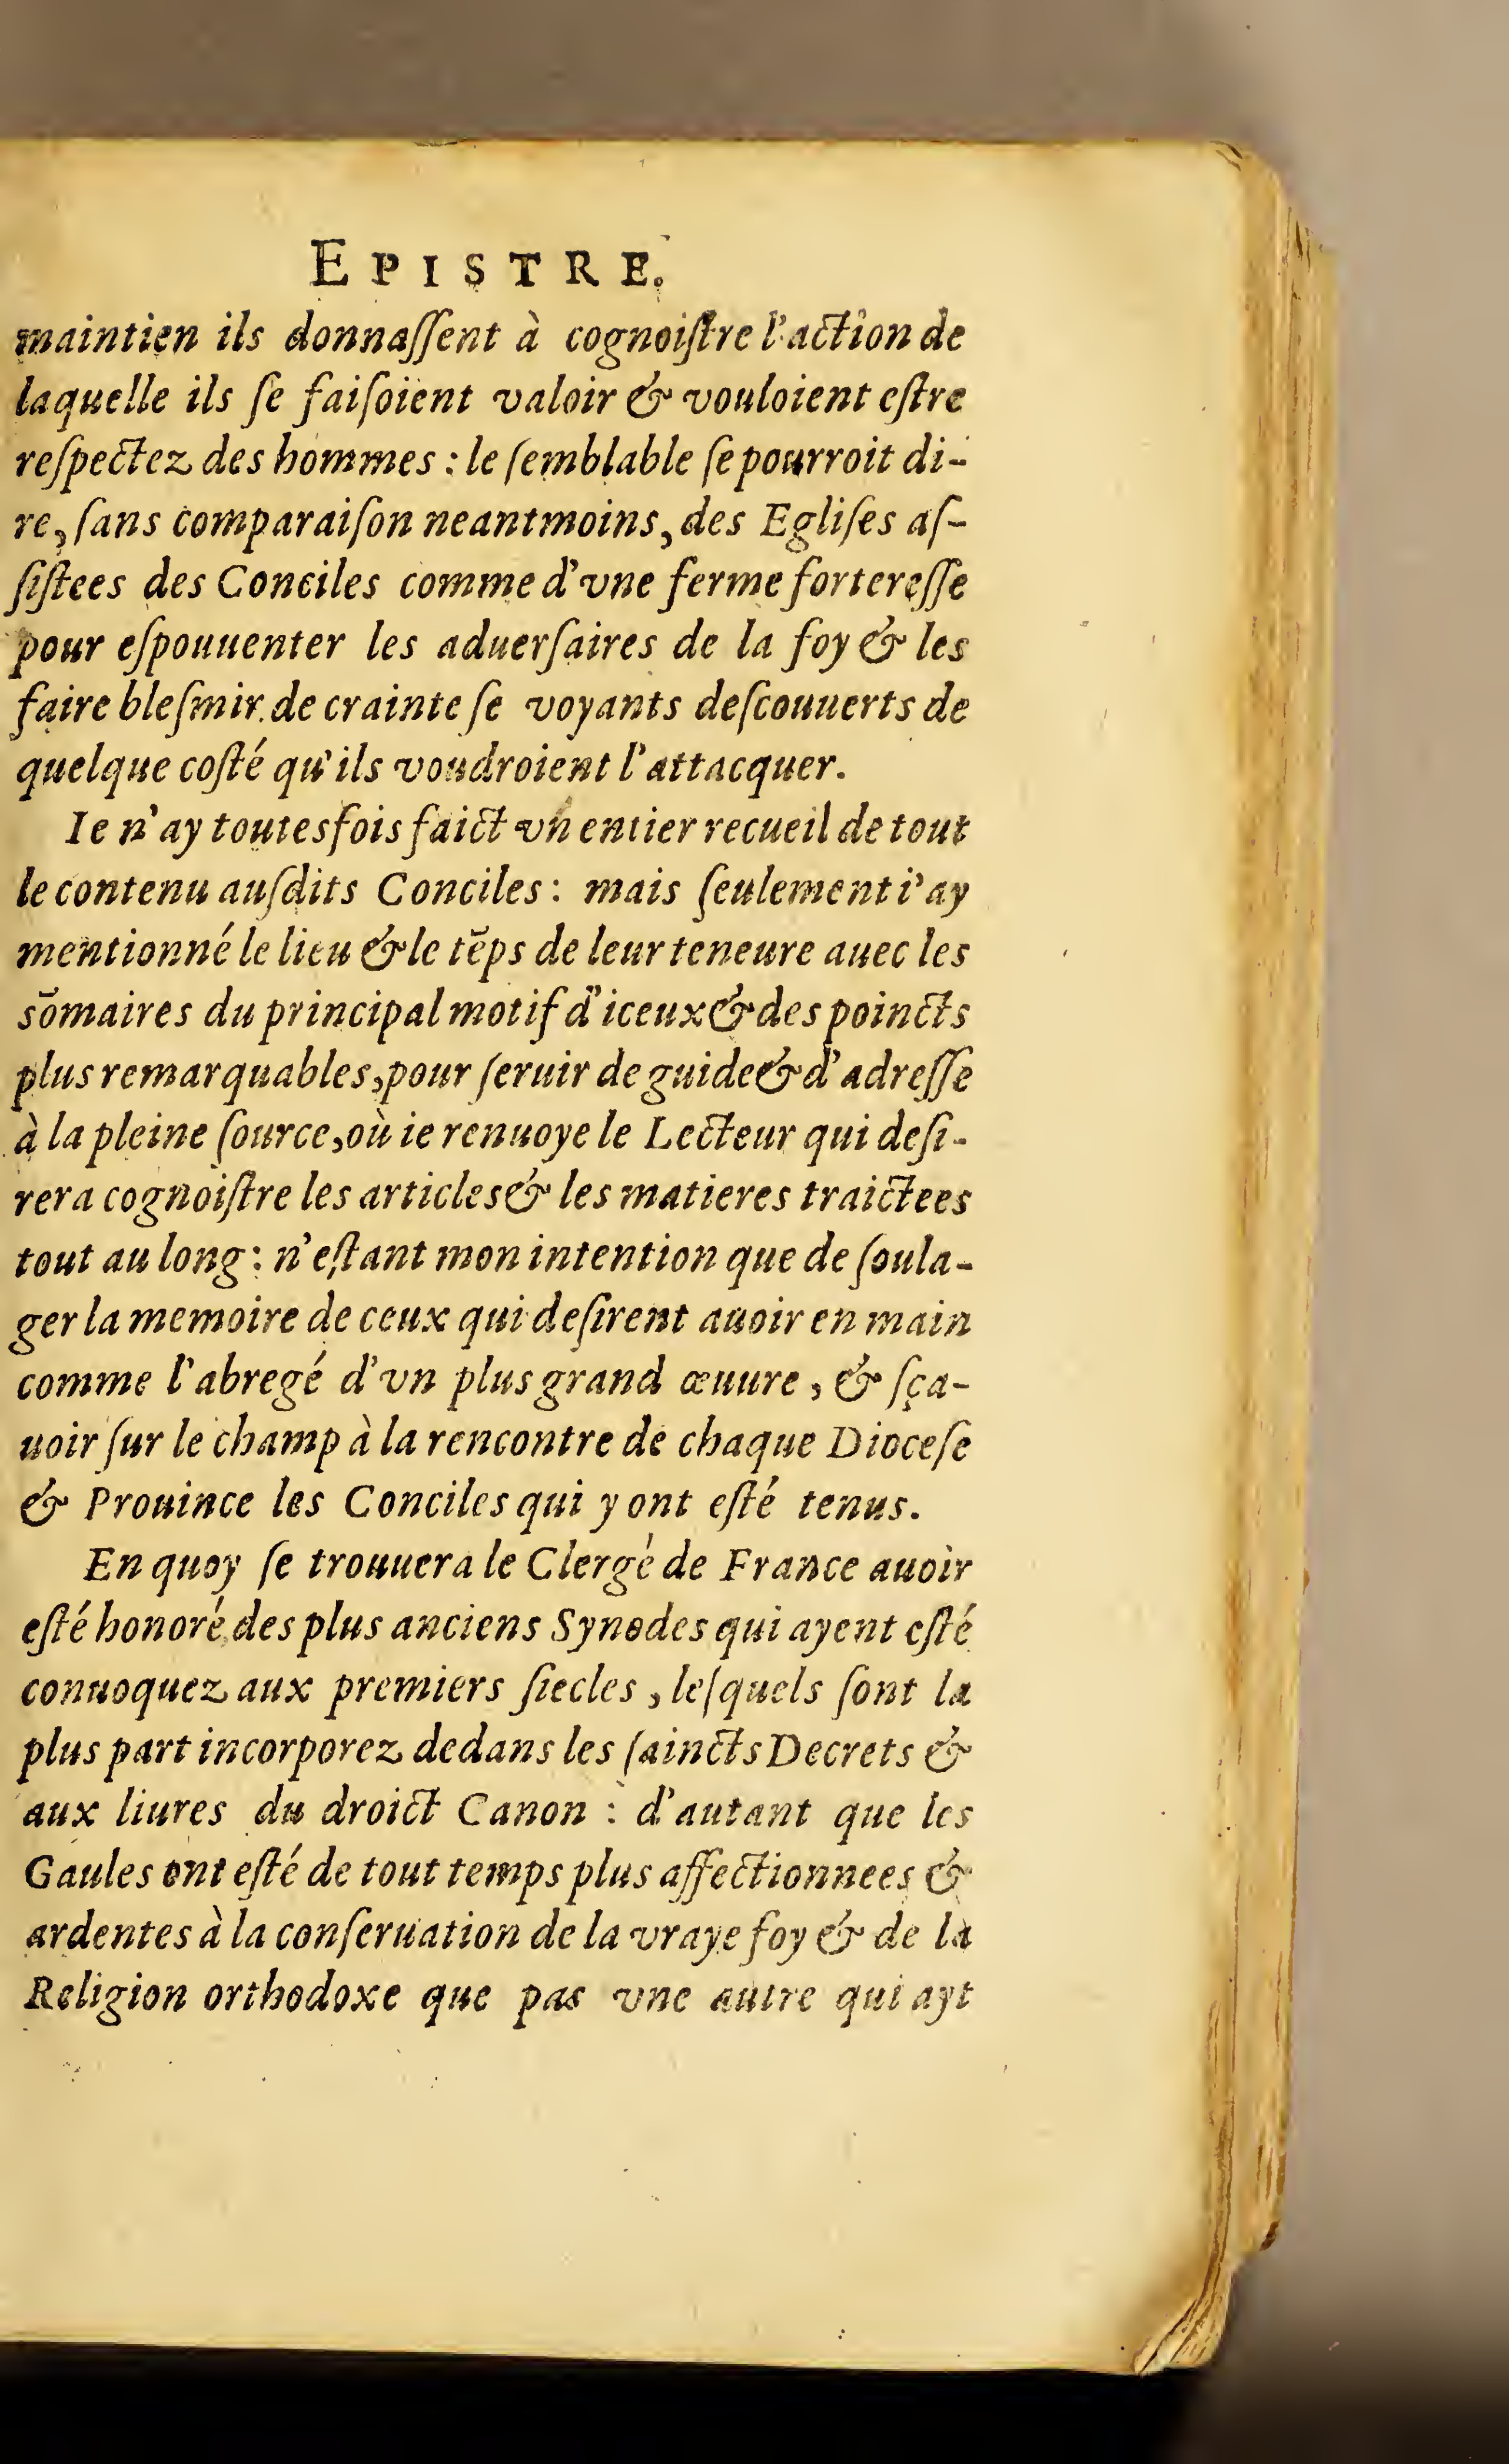 EPISTRE.
maintien ils donnaſſent à cognoiſtre l'action de
laquelle ils ſe faiſoient valoir & vouloient eſtre
reſpectez des hommes : le ſemblable ſe pourroit di-
re, ſans comparaiſon neantmoins, des Egliſes aſ-
ſiſtees des Conciles comme d'vne ferme fortereſſe
pour eſpouuenter les aduerſaires de la foy & les
faire bleſmir de crainte ſe voyants deſcouuerts de
quelque coſté qu'ils voudroient l'attacquer.
Ie n'ay toutesfois faict vn entier recueil de tout
le contenu auſdits Conciles : mais ſeulement i'ay
mentionné le lieu & le tẽps de leur teneure auec les
sõmaires du principal motif d'iceux & des poincts
plus remarquables, pour ſeruir de guide & d'adreſſe
à la pleine ſource, où ie renuoye le Lecteur qui deſi-
rera cognoiſtre les articles & les matieres traictees
tout au long : n'eſtant mon intention que de ſoula-
ger la memoire de ceux qui deſirent auoir en main
comme l'abregé d'vn plus grand œuure, & ſça-
uoir ſur le champ à la rencontre de chaque Dioceſe
& Prouince les Conciles qui y ont eſté tenus.
En quoy ſe trouuera le Clergé de France auoir
eſté honoré des plus anciens Synodes qui ayent eſté
conuoquez aux premiers ſiecles, leſquels ſont la
plus part incorporez dedans les ſaincts Decrets &
aux liures du droict Canon : d'autant que les
Gaules ont eſté de tout temps plus affectionnees &
ardentes à la conſeruation de la vraye foy & de la
Religion orthodoxe que pas vne autre qui ayt